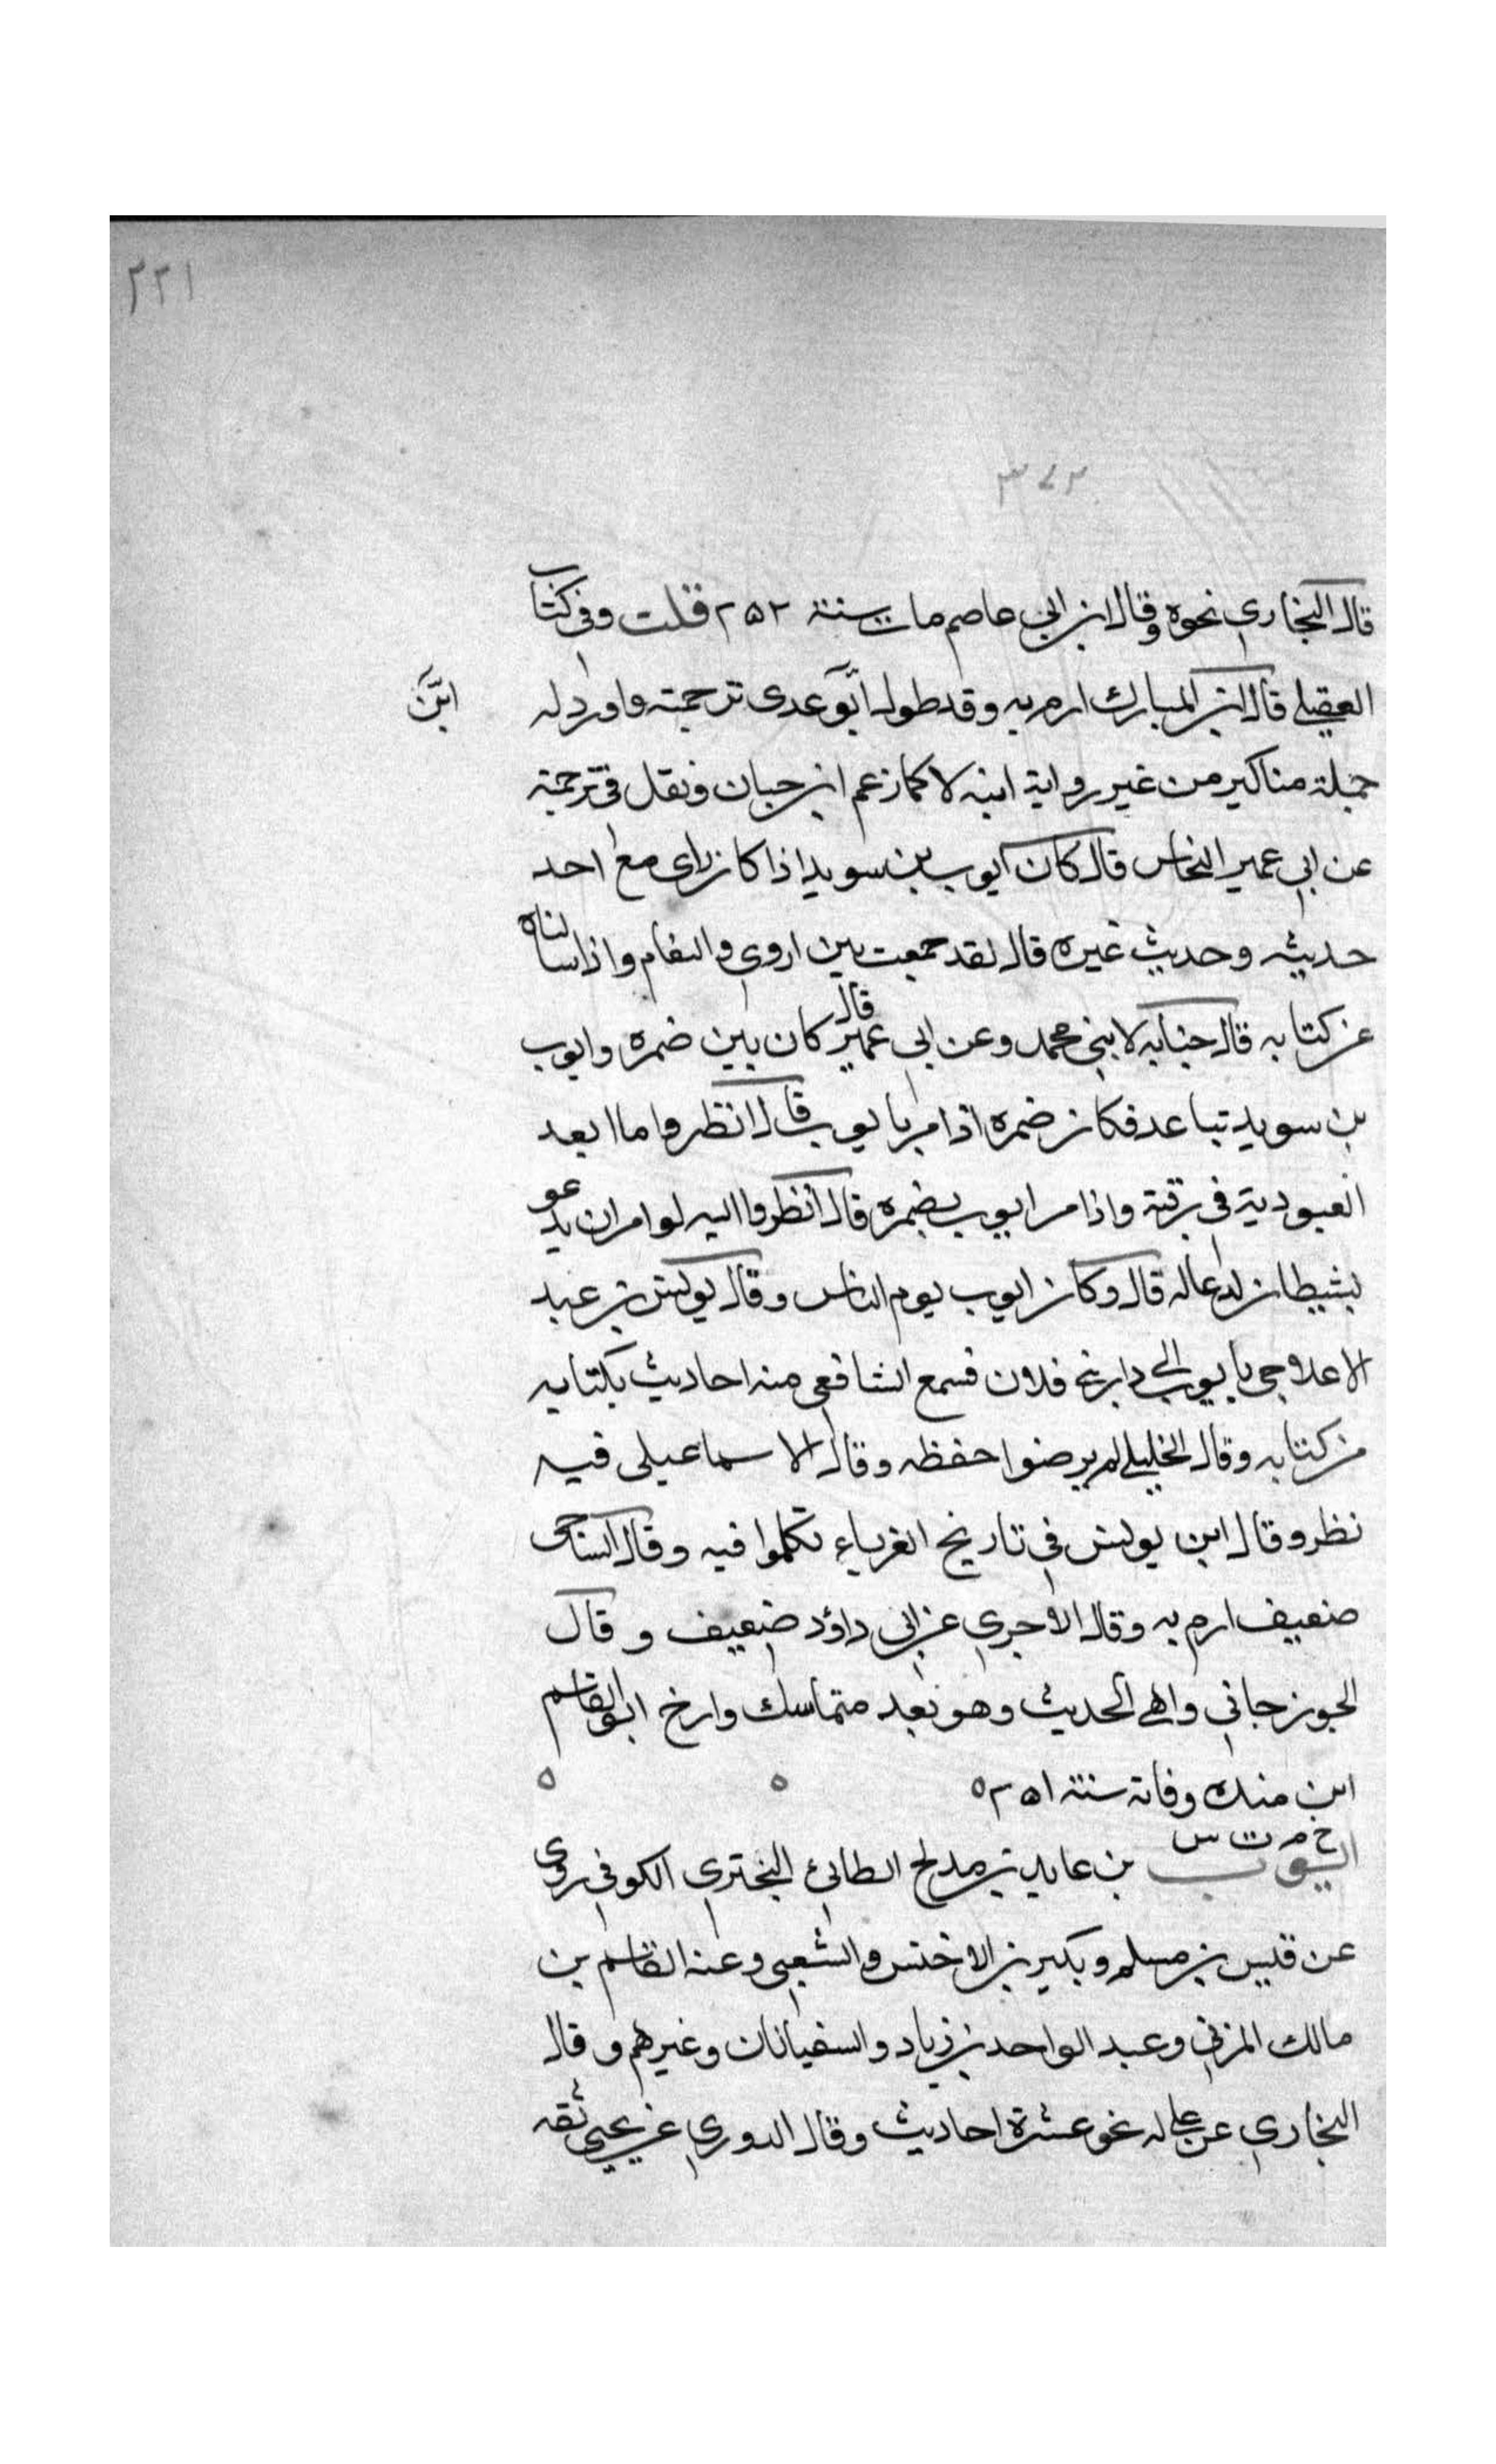 ٢٢١
٣٧٢
قال البخاري نحوه وقال ابن ابي عاصم مات سنة ٢٥٢ قلت وفي كتاب
العقيلي قال ابن المبارك ارم به وقد طول ابو عدى ترجمته واورد له
ابن
جملة مناكير من غير رواية ابنه لا كما زعم ابن حبان ونقل في ترجمة
عن ابي عمير النخاس قال كان ايوب بن سويد اذا كان راى مع احد
حديثه وحديث غيره قال لقد جمعت بين اروى والنعام واذا سالناه
عن كتابه قال خبابه لابني محمد وعن ابي عمير قال كان بين ضمره وايوب
بن سويد تباعد فكان ضمره اذا مر بايوب قال انظروا ما ابعد
العبودية في رقبة واذا مر ايوب بضمره قال انظروا اليه لو امر ان يدعو
لشيطان لدعا له قال وكان ايوب يوم الناس وقال يونس بن عبد
الاعلا جى بايوب الى دار بني فلان فسمع الشافعى منه احاديث بكتابه
من كتابه وقال الخليلي لم يرضوا حفظه وقال الاسماعيلى فيه
نظر وقال ابن يونس في تاريخ الغرباء تكلموا فيه وقال الساجى
ضعيف ارم به وقال الاجري عن ابى داؤد ضعيف وقال
الجوزجاني واهي الحديث وهو بعد متماسك وارخ ابو القاسم
ابن منده وفاته سنة ٢٥١ ه ه ه
خ م ت س
ايوب بن عايد بن مدلج الطائي البختري الكوفي روى
عن قيس بن مسلم وبكير بن الاخنس والشعبي وعنه القاسم بن
مالك المزني وعبد الواحد بن زياد والسفيانان وغيرهم وقال
البخاري عن علي له نحو عشرة احاديث وقال الدوري عن يحيى ثقه